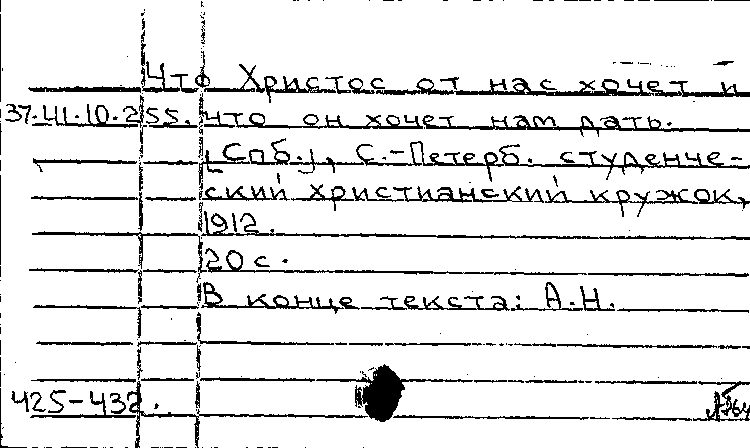 Что Христос от нас хочет и
37.41.10.255. что он хочет нам дать.
[Спб.], С.-Петерб. студенче-
ский христианский кружок,
1912.
20 с.
В конце текста: А.Н.
425-432.